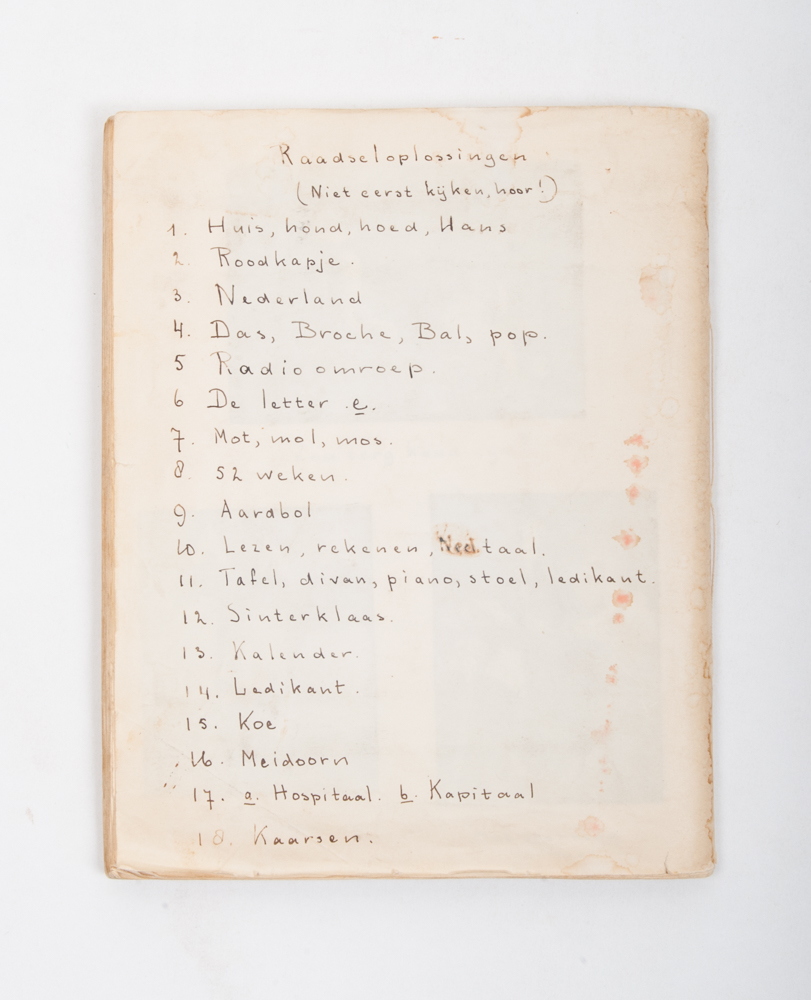 Raadseloplossingen
(Niet eerst kijken, hoor!)
1. Huis, hond, hoed, Hans
2. Roodkapje.
3. Nederland
4. Das, Broche, Bal, pop.
5 Radio omroep.
6 De letter e.
7. Mot, mol, mos.
8. 52 weken.
9. Aardbol
10. Lezen, rekenen, Ned. taal.
11. Tafel, divan, piano, stoel, ledikant.
12. Sinterklaas.
13. Kalender.
14. Ledikant.
15. Koe
16. Meidoorn
17. a. Hospitaal. b. Kapitaal
18. Kaarsen.